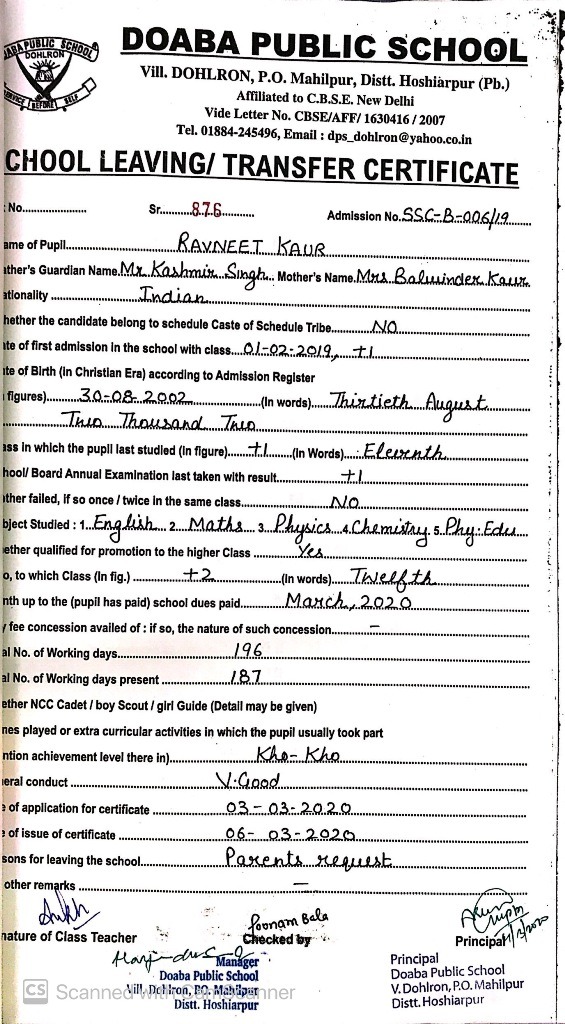 DOABA PUBLIC SCHOOL
DOHLRON
SERVICE BEFORE SELF
DOABA PUBLIC SCHOOL
Vill. DOHLRON, P.O. Mahilpur, Distt. Hoshiarpur (Pb.)
Affiliated to C.B.S.E. New Delhi
Vide Letter No. CBSE/AFF/ 1630416 / 2007
Tel. 01884-245496, Email : dps_dohlron@yahoo.co.in
CHOOL LEAVING/ TRANSFER CERTIFICATE
No.................. Sr.........876....... Admission No. SSC-B-006/19
ame of Pupil............ RAVNEET KAUR
ather's Guardian Name. Mr. Kashmir Singh.. Mother's Name. Mrs Balwinder Kaur
ationality ............ Indian
hether the candidate belong to schedule Caste of Schedule Tribe........ NO
te of first admission in the school with class.... 01-02-2019, +1
te of Birth (in Christian Era) according to Admission Register
figures)........ 30-08-2002 ........(In words).... Thirtieth August
Two Thousand Two
ass in which the pupil last studied (In figure)..... +1 .....(In Words)... Eleventh
hool/ Board Annual Examination last taken with result........ +1
ther failed, if so once / twice in the same class........ NO
bject Studied : 1. English 2. Maths 3. Physics 4. Chemistry 5. Phy. Edu
ether qualified for promotion to the higher Class ........ Yes
o, to which Class (In fig.) ...... +2 ......(In words)... Twelfth
nth up to the (pupil has paid) school dues paid........ March, 2020
y fee concession availed of : if so, the nature of such concession........ –
al No. of Working days........ 196
al No. of Working days present ........ 187
ether NCC Cadet / boy Scout / girl Guide (Detail may be given)
nes played or extra curricular activities in which the pupil usually took part
ntion achievement level there in)........ Kho-Kho
eral conduct ........ V.Good
e of application for certificate ........ 03-03-2020
e of issue of certificate ........ 06-03-2020
sons for leaving the school........ Parents request
other remarks ........ –
Poonam Bala
nature of Class Teacher Checked by Principal
Manager
Doaba Public School
Vill. Dohlron, P.O. Mahilpur
Distt. Hoshiarpur
Principal
Doaba Public School
V. Dohlron, P.O. Mahilpur
Distt. Hoshiarpur
CS Scanned with CamScanner